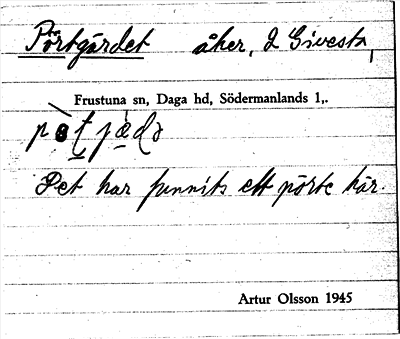 Pörtgärdet åker, 2 Givesta,
Frustuna sn, Daga hd, Södermanlands l,.
Det har funnits ett pörte här.
Artur Olsson 1945